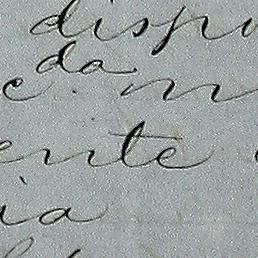 dispu
da
c. m
ente
ia